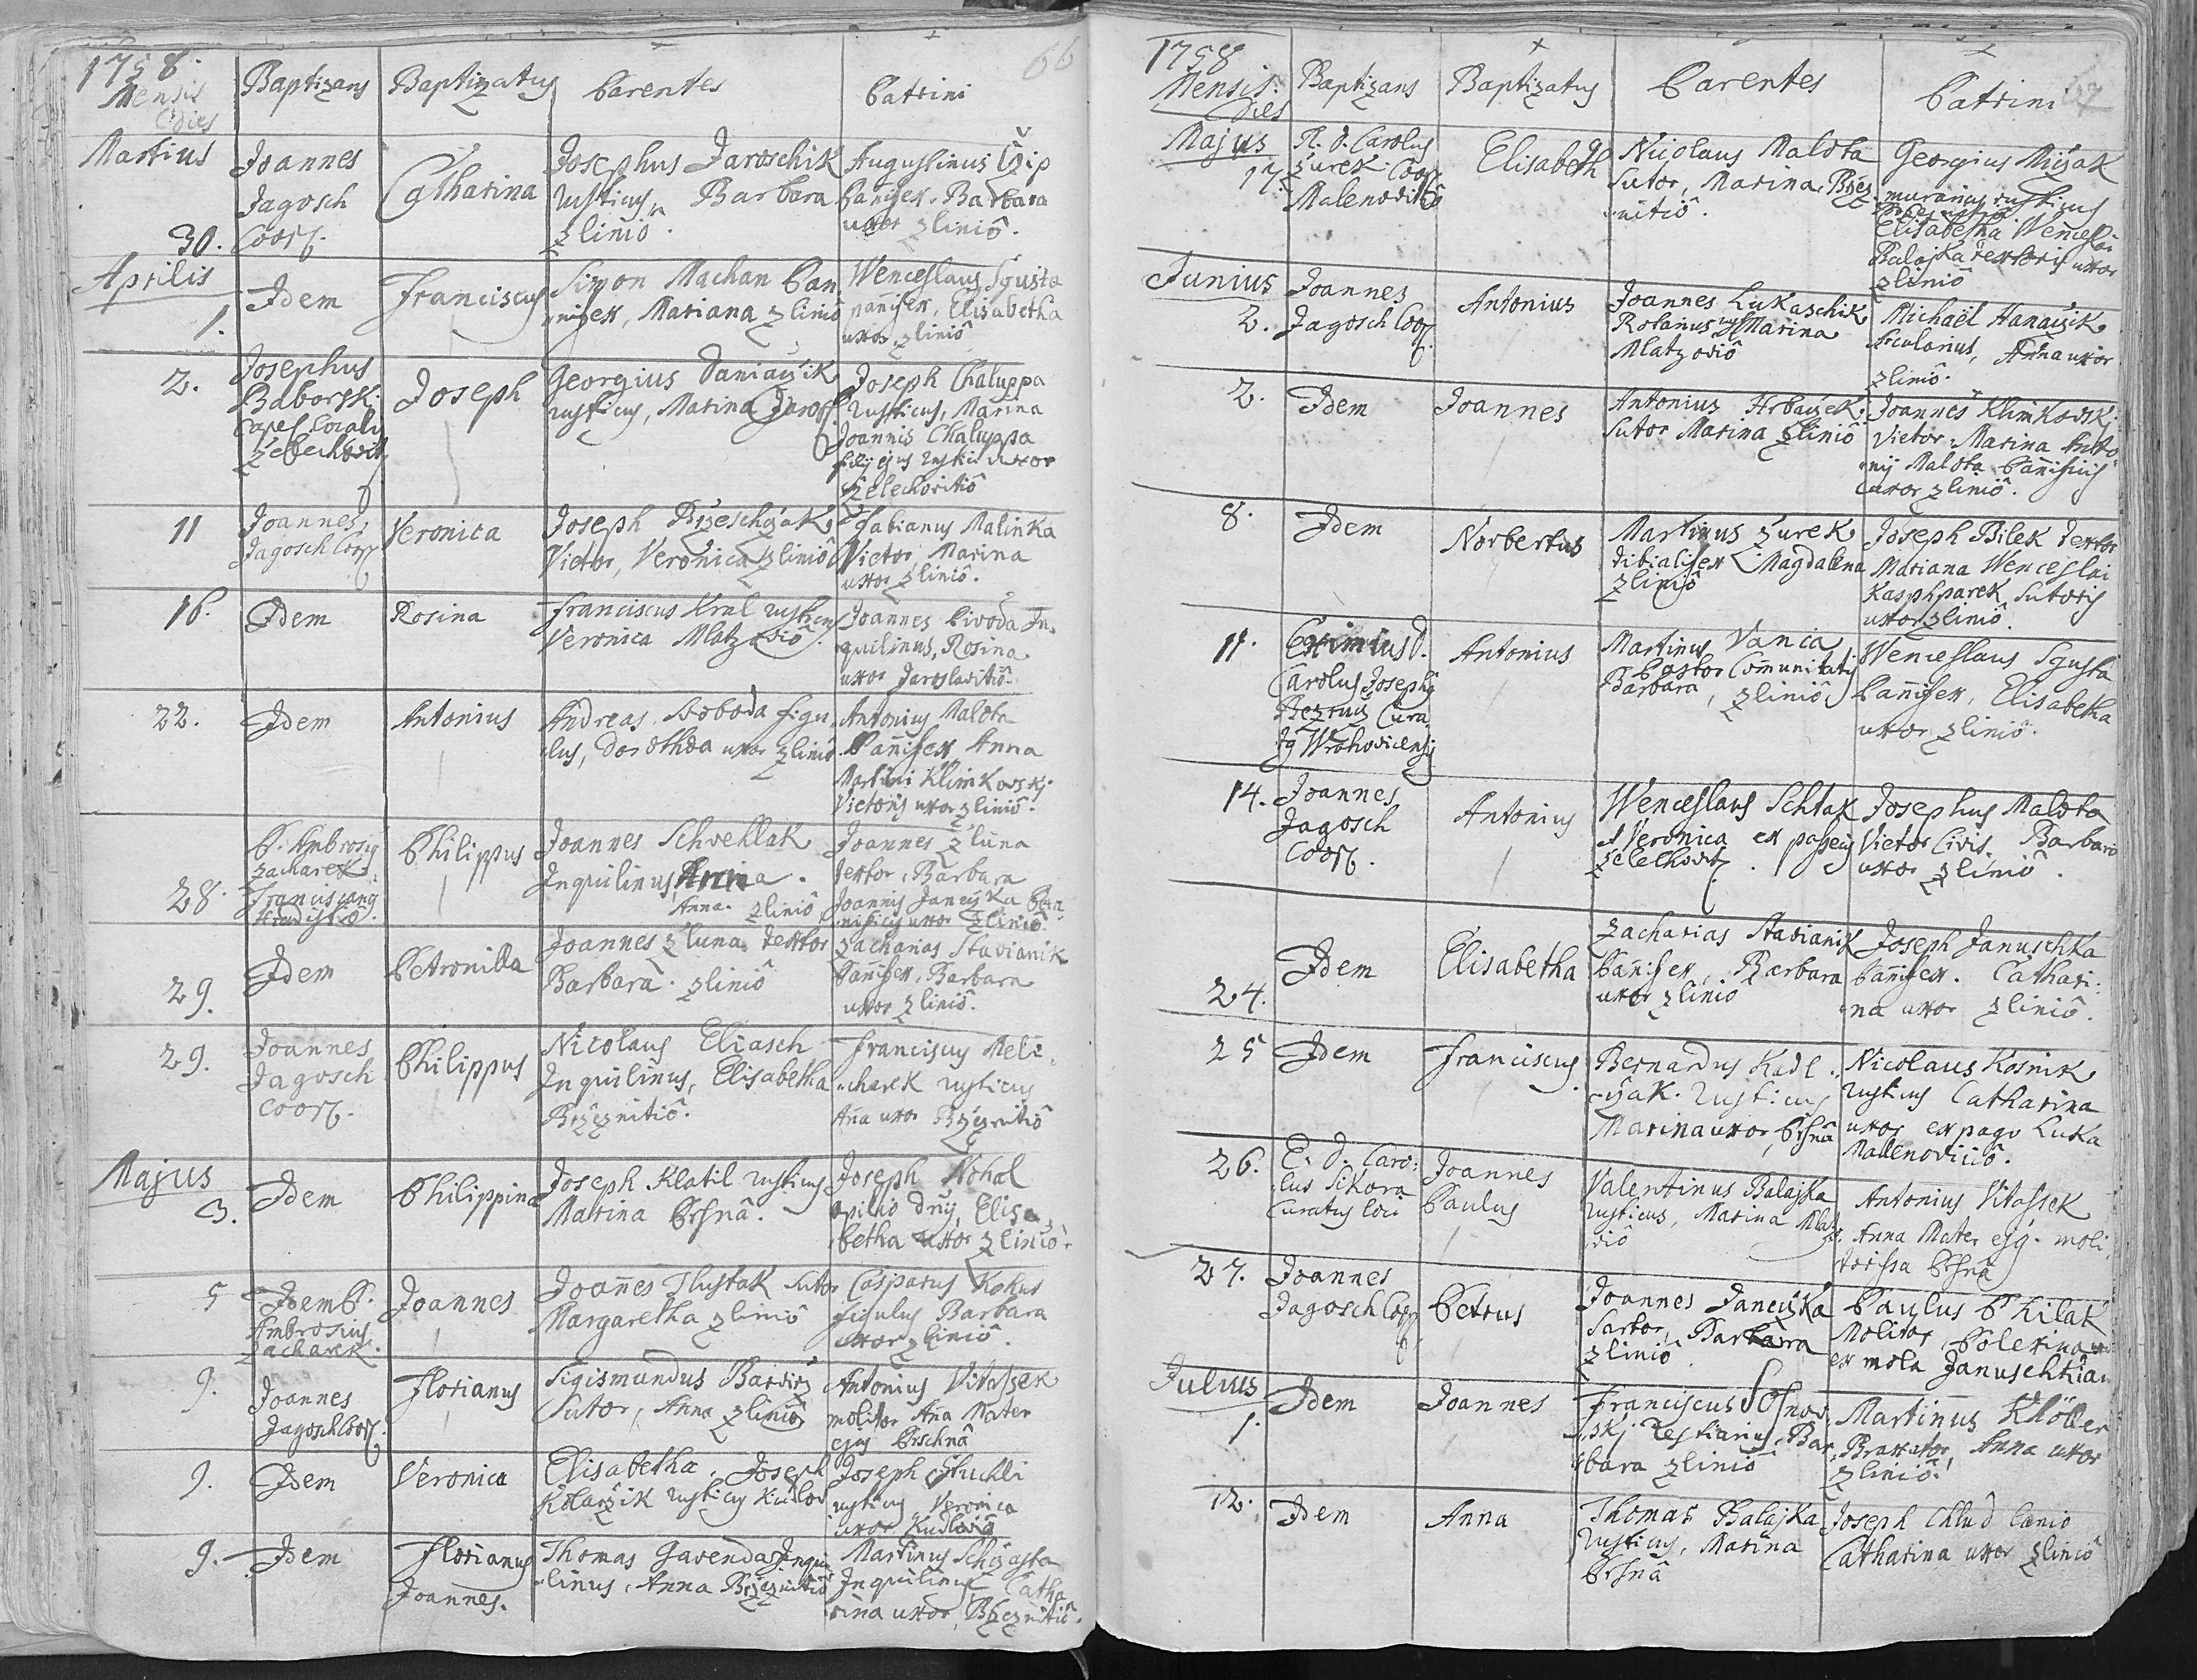 1758.
Mensis
Dies
Baptizans
Baptizatus
Parentes
Patrini
66
Martius
30.
Joannes
Jagosch
Coop.
Catharina
Josephus Jaroschik
rusticus, Barbara
Zlinio.
Augustinus
pannifex, Barbara
uxor Zlinio.
Aprilis
1.
Idem
Franciscus
Simon Machan Pan
nifex, Mariana Zlinio
Wenceslaus Sgusta
pannifex, Elisabetha
uxor Zlinio
2.
Josephus
Baborsk.
Capel. Localis
Zelechovit
Joseph
Georgius Daniaczik
rusticus, Marina
Joseph Chaluppa
rusticus, Marina
Joannis Chaluppa
filij ejus rustici uxor
Zelechovitio
11
Joannes
Jagosch Coop
Veronica
Joseph
Vietor, Veronica Zlinio
Fabianus Malinka
Vietor, Marina
uxor Zlinio.
16.
Idem
Rosina
Franciscus Kral rusticus
Veronica Mlatzovio.
Joannes Pivoda In,
quilinus, Rosina
uxor Jaroslavitio
22.
Idem
Antonius
Andreas Soboda figu,
lus, Dorothea uxor Zlinio
Antonius Malota
Pannifex Anna
Martini Klimkovskj
Vietoris uxor Zlinio.
28.
P. Ambrosius
Zacharek
Franciscanus
Philippus
Joannes Schvehlak
Inquilinus, Anna.
Anna. Zlinio
Joannes Zluna
Textor, Barbara
Joannis Janczka Pan
nificis uxor Zlinio
29.
Idem
Petronilla
Joannes Zluna Textor
Barbara. Zlinio
Zacharias Stavianik
Pannifex, Barbara
uxor Zlinio.
29.
Joannes
Jagosch
Coop.
Philippus
Nicolaus Eliasch
Inquilinus, Elisabetha
Brzeznitio.
Franciscus Meli,
charek rusticus
Aña uxor Brzeznitio
Majus
3.
Idem
Philippina
Joseph Klatil rusticus
Marina Prsna.
Joseph Nohal
opilio Elisa
betha uxor Zlinio.
5
Idem P.
Ambrosius
Zacharek.
Joannes
Joañes Tlustak sutor
Margaretha Zlinio
Casparus Kokus
figulus Barbara
uxor Zlinio.
9.
Joannes
Jagosch Coop.
Florianus
Sigismundus
Sutor, Anna Zlinio
Antonius Vitassek
molitor Aña Mater
ejus Prschna
9.
Idem
Veronica
Elisabetha. Joseph
Kolarzik rusticus Kudlov
Joseph Stuchli
rusticus Veronica
uxor Kudlovio
9.
Idem
Florianus
Joannes.
Thomas Gavenda Inqui
linus, Anna Brzeznitio
Martinus
Inquilinus Catha
rina uxor, Brzeznitio.
1758
Mensis.
Dies
Baptizans
Baptizatus
Parentes
Patrini
67
Majus
17.
R. D. Carolus
Zurek Coop.
Malenovitio
Elisabeth
Nicolaus Malota
Sutor, Marina, Brzez
nitio.
Georgius Mizak
murarius rusticus
Elisabetha Wenceslai
Balajka textoris uxor
Zlinio
Junius
2.
Joannes
Jagosch Coop.
Antonius
Joannes Lukaschik
Rotarius Marina
Mlatzovio
Michaël Hanaczik
Arcularius, Anna uxor
Zlinio.
2.
Idem
Joannes
Antonius Hrbaczek
Sutor Marina Zlinio
Joannes Klimkovskj
Vietor. Marina Anto
nij Malota Pannificis
uxor Zlinio.
8.
Idem
Norbertus
Martinus Zurek
tibialifex Magdalena
Zlinio
Joseph Bilek Textor
Mariana Wenceslai
Kaspsparek Sutoris
uxor Zlinio.
11.
Eximius D.
Carolus Joseph9
Bezruz Cura
Antonius
Martinus Vania
Pastor Communitatis
Barbara, Zlinio
Wenceslaus Sgusta
Pannifex, Elisabetha
uxor Zlinio.
14.
Joannes
Jagosch
Coop.
Antonius
Wenceslaus Schtak
et Veronica ex
Zelechovitz.
Josephus Malota
Vietor Civis. Barbara
uxor Zlinio.
24.
Idem
Elisabetha
Zacharias Stavianik
Panifex, Barbara
uxor Zlinio
Joseph Januschka
Pannifex. Cathari:
na uxor Zlinio.
25
Idem
Franciscus
Bernardus Kadl.
czak. rusticus
Marina uxor, Prsna
Nicolaus Kosnik
rusticus Catharina
uxor ex pago Luka
Malenovicio.
26.
E. D. Caro:
lus Sikora
Curatus loci
Joannes
Paulus
Valentinus Balajka
rusticus, Marina Mlatz
ovio
Antonius Vitassek
Anna Mater ej9. moli
torissa Prsna
27.
Joannes
Jagosch Coop
Petrus
Joannes Janczka
Sartor, Barbara
Zlinio
Paulus Philak
Molitor
ex mola Januschtian
Julius
1.
Idem
Joannes
Franciscus Sosnov
skj Vestiarius, Bar
bara Zlinio
Martinus Klöller
Braxator, Anna uxor
Zlinio.
12.
Idem
Anna
Thomas Balajka
rusticus, Marina
Prsna
Joseph Chlud Lanio
Catharina uxor Zlinio